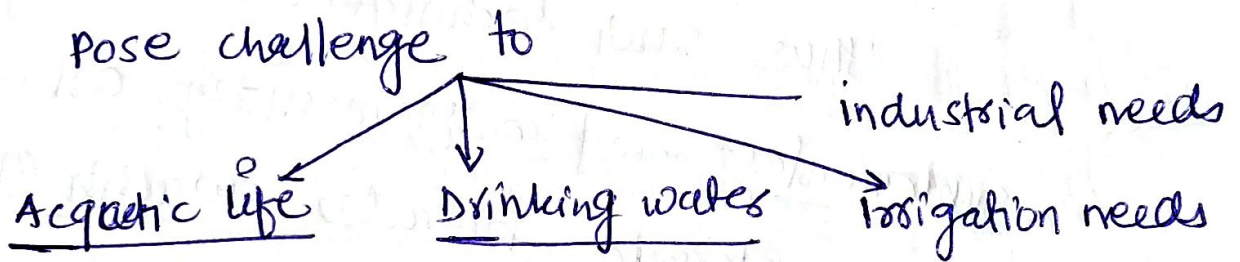 Pose challenge to
industrial needs
Acquatic life
Drinking water
irrigation needs